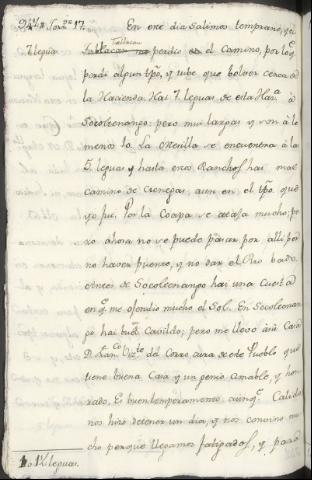 En ese dia salimos temprano, y el
7 leguas. perdio el Camino, por lo q.e
perdi algun tpo, y tube que bolver cerca de
la Hacienda. Hai 7 leguas de esta Haz.a à
Socoltenango: pero mui largas y son à lo
menos 10. La Orilla se encuentra à la
5 leguas y hasta esos Ranchos hai mal
camino de cienegas, aun en el tpo. que
yo fui. Por la Coapa se ataja mucho; pe
ro ahora no se puede pasar por alli por
no haver puente, y no dar el Rio bado.
Antes de Socoltenango hai una Cuesta
en q.e me ofendio mucho el Sol. En Socoltenan
go hai buen Cavildo; pero me llevo à su Casa
D. Fran.co del Corro cura de este Pueblo que
tiene buena Casa y un genio amable, y hon
rado. Es buen temperamento aunq.e Calido
nos hizo detener un dia, y nos convino mu
cho porque llegamos fatigados, y para
12 leguas.